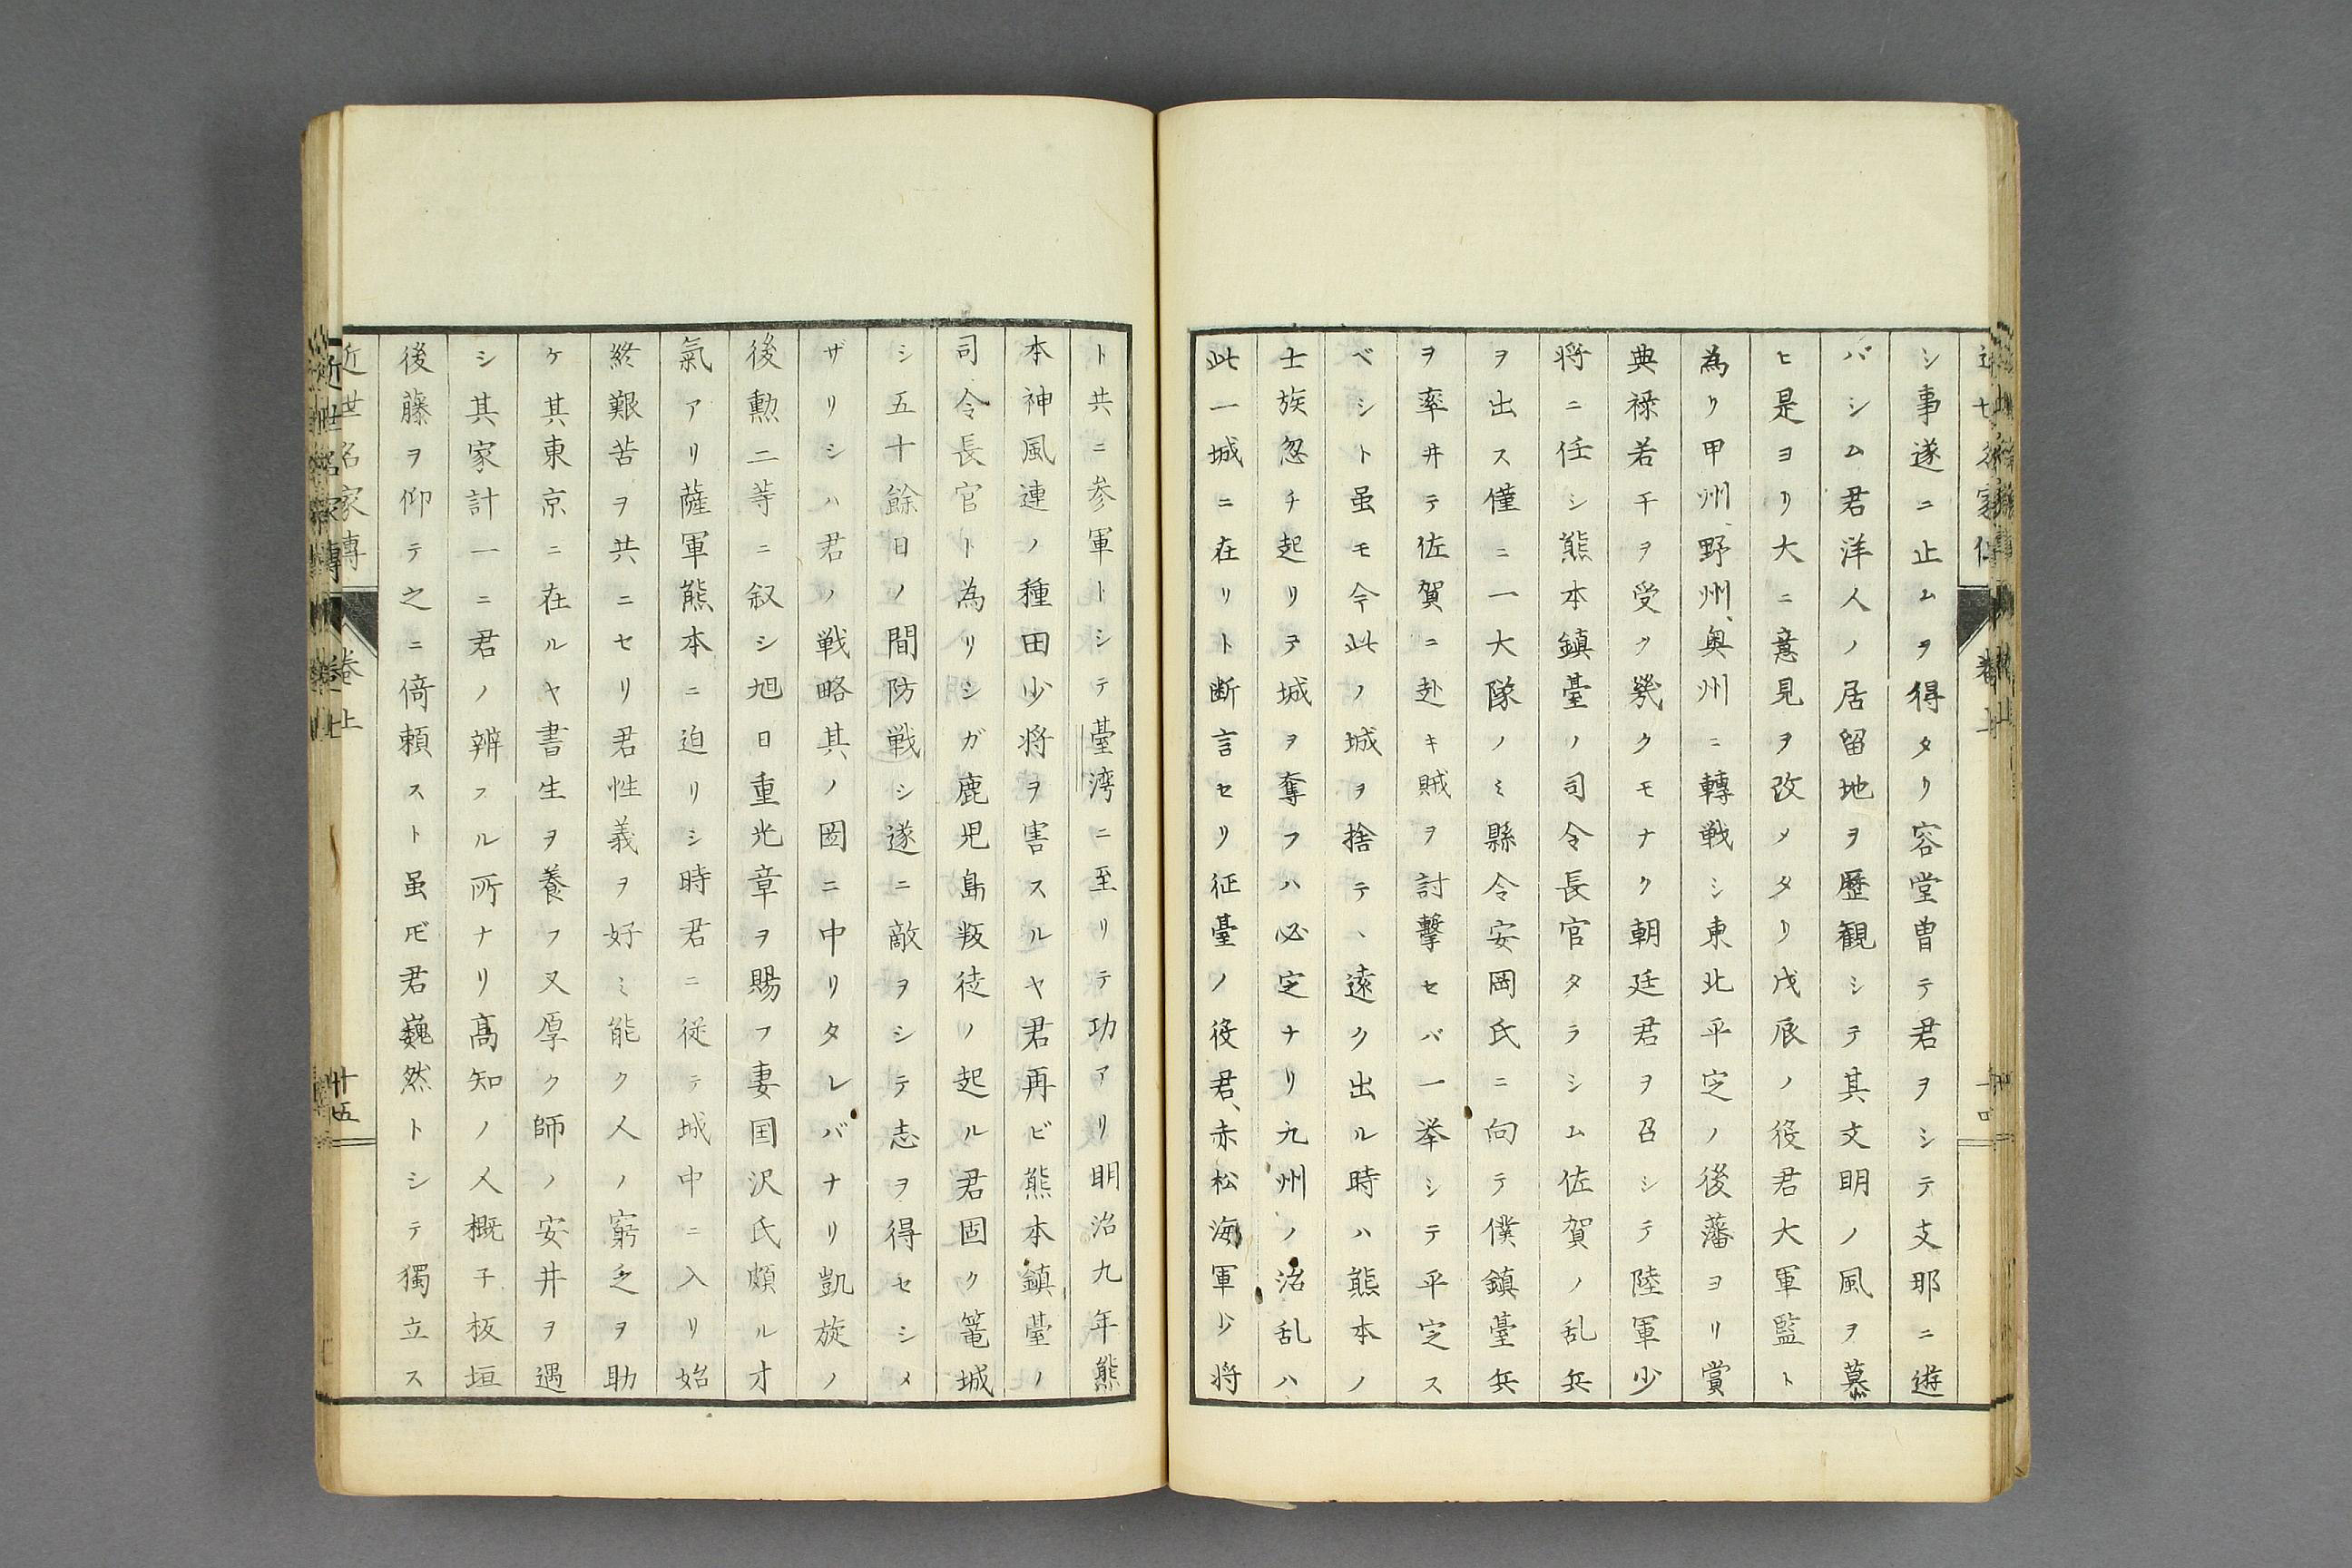 シ事遂ニ止ムヲ得タリ容堂曽テ君ヲシテ支耶ニ遊
バシム君洋人ノ居留地ヲ歴観シテ其文明ノ風ヲ慕
ヒ是ヨリ大ニ意見ヲ改メタリ戊辰ノ役君大軍監ト
為リ甲州、野州、奥州ニ轉戦シ東北平定ノ後藩ヨリ賞
典禄若干ヲ受ク幾クモナク朝廷君ヲ召シテ陸軍少
将ニ任シ熊本鎮臺ノ司令長官タラシム佐賀ノ乱兵
ヲ出ス僅ニ一大隊ノミ縣令安岡氏ニ向テ僕鎮臺兵
ヲ率井テ佐賀ニ赴キ賊ヲ討撃セバ一挙シテ平定ス
ベシト虽モ今此ノ城ヲ捨テヽ遠ク出ル時ハ熊本ノ
士族忽チ起リテ城ヲ奪フハ必定ナリ九州ノ治乱ハ
此一城ニ在リト断言セリ征臺ノ役君、赤松海軍少将
ト共ニ参軍トシテ臺湾ニ至リテ功アリ明治九年熊
本神風連ノ種田少将ヲ害スルヤ君再ビ熊本鎮臺ノ
司令長官ト為リシガ鹿児島叛徒ノ起ル君固ク篭城
シ五十餘日ノ間防戦シ遂ニ敵ヲシテ志ヲ得セシメ
ザリシハ君ノ戦略其ノ図ニ中リタレバナリ凱旋ノ
後勲二等ニ叙シ旭日重光章ヲ賜フ妻国沢氏頗ル才
氣アリ薩軍熊本ニ迫リシ時君ニ従テ城中ニ入リ始
終艱苦ヲ共ニセリ君性義ヲ好ミ能ク人ノ窮乏ヲ助
ケ其東京ニ在ルヤ書生ヲ養フ又厚ク師ノ安井ヲ遇
シ其家計一ニ君ノ辨スル所ナリ高知ノ人概子板垣
後藤ヲ仰テ之ニ倚頼スト虽𪜈君巍然トシテ獨立ス
近世名家傳
巻上
十五